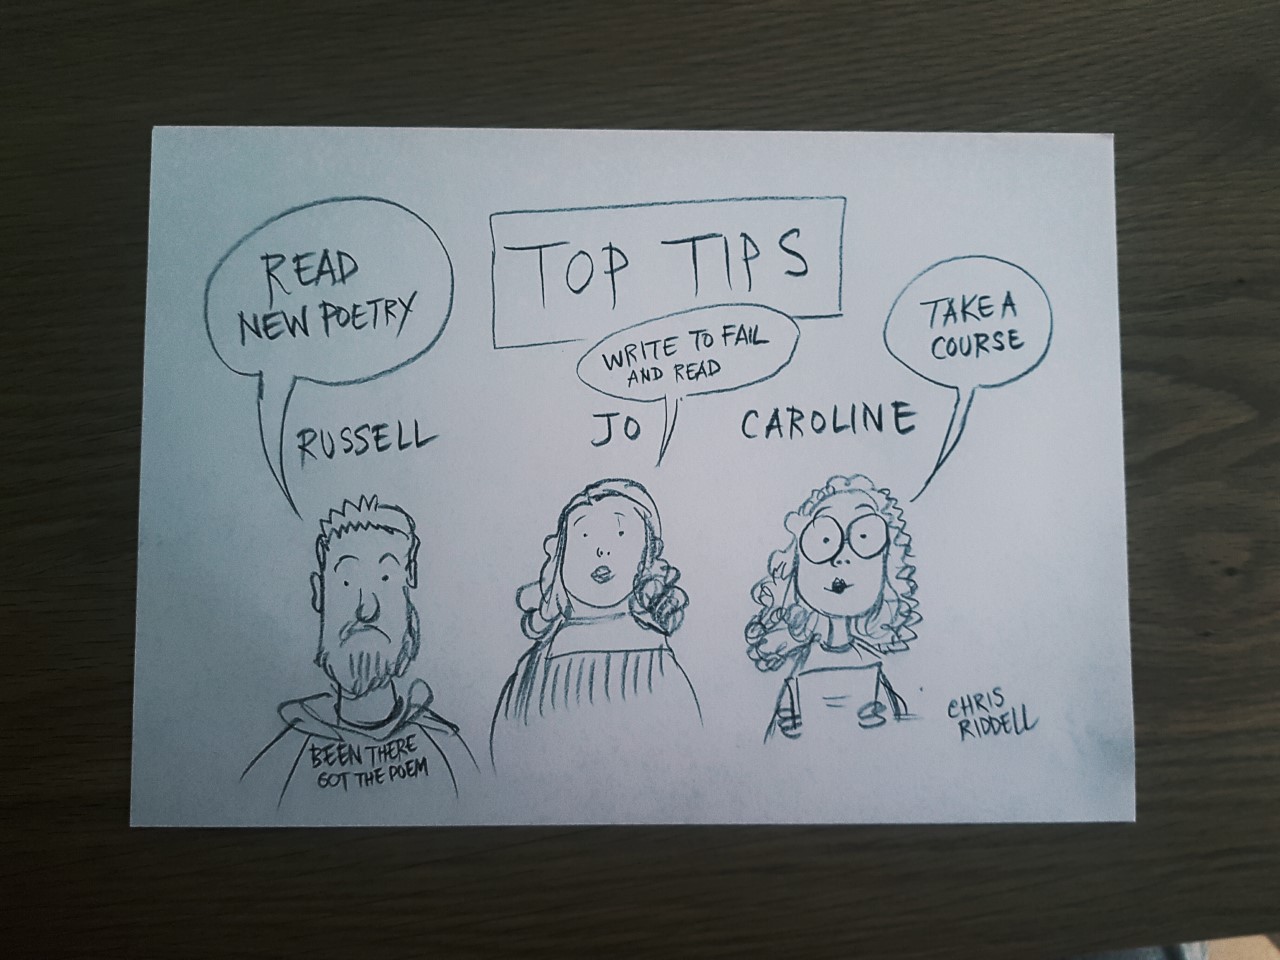 TOP TIPS
READ
NEW POETRY
RUSSELL
WRITE TO FAIL
AND READ
JO
TAKE A
COURSE
CAROLINE
BEEN THERE
GOT THE POEM
CHRIS
RIDDELL